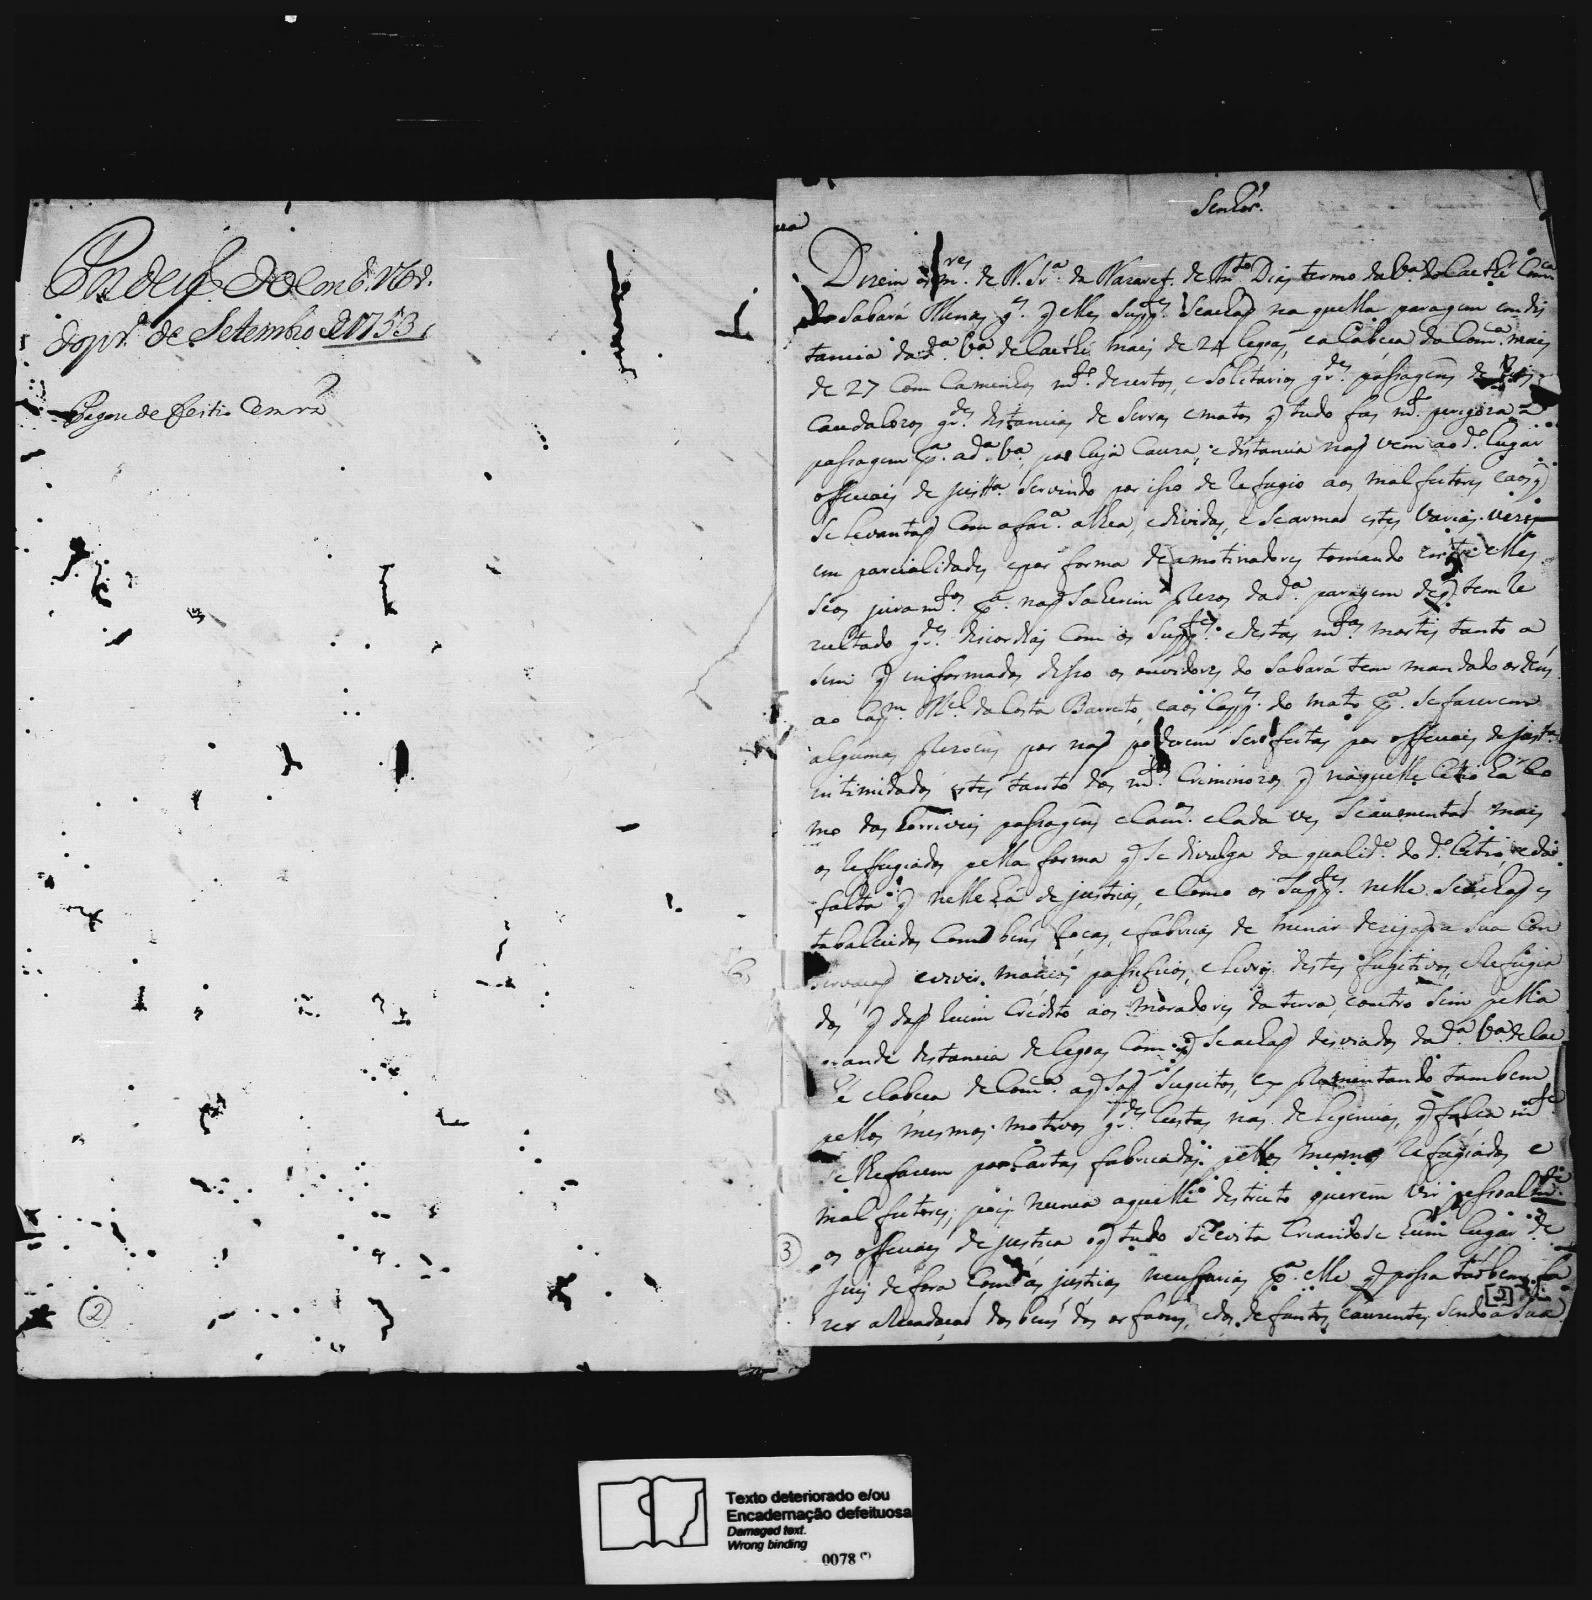 do pr.º de Setembro de 1753
Pagou de feitio Cem rs
2
Senhor.
Dizem os m.res de N. Sr.a da Nazaret. de Ant.o Dias termo da V.a do Caethé Com.ca
do Sabará Minas q. elles Supp.es Se achaõ na quella paragem em dis
tancia da d.a V.a de Caethé mais de 24 legoas, e a Cabeca da Com.ca mais
de 27 Com Caminhos m.to dezertos, e Solitarios gr.des passagens de Rios
Caudalozos gr.des distancias de Serras e matos q tudo fas m.to perigoza a
passagem p.a a d.a V.a, por cuja Cauza, e distancia naõ vem ao d.o lugar
officiais de just.a Servindo por isso de Refugio aos mal feitores e aos q
Se levantaõ Com a faz.a alhea, e dividas, e Se armaõ estes varias vezes
em parcialidades e por forma de amotinadores tomando entre elles
Seos juram.tos p.a naõ Sahirem prezos da d.a paragem de q tem re
zultado gr.des discordias Com os Supp.es e destas m.tas mortes tanto a
Sim q informados disso os ouvidores do Sabará tem mandado ordens
ao Cap.m M.el da Costa Barreto, e aos Capp.es do mato p.a Se fazerem
algumas prizoens por naõ poderem Ser feitas por officiais de just.a
intimidados estes tanto dos m.tos Criminozos q naquelle Citio há Co
mo das horriveis passagens e Cam.os e Cada ves Se aumentaõ mais
os Reffugiados pella forma q Se divulga da qualid.e do d.o Citio, e da
falta q nelle há de justicas, e Como os Supp.es nelle Se achaõ es
tabalecidos Com bens Rocas, e fabricas de minar dezejaõ a Sua Con
servacaõ e viver mancos passificos, e livres destes fugitivos, e Refugia
dos q daõ ruim Crédito aos moradores da terra, e outro Sim pella
grande distancia de legoas Com q Se achaõ desviados da d.a V.a de Cae
thé e Cabeca de Com.ca a q Saõ Sugeitos, experimentando tambem
pellos mesmos motivos gr.des Custas nas deligencias, q
Se lhe fazem por Cartas fabricadas pellos mesmos Refugiados e
mal feitores, pois nunca aquelle destricto querem vir pessoalm.te
os officiais de justica o q tudo Se evita Creandose hum lugar de
Juis de fora Com as justicas necessarias p.a elle q possa taõ bem fa
zer aRecadacaõ dos bens dos orfaons, e dos defuntos, e auzentes Sendo a Sua
3
2
Texto deteriorado e/ou
Encadernação defeituosa
Damaged text.
Wrong binding
0078